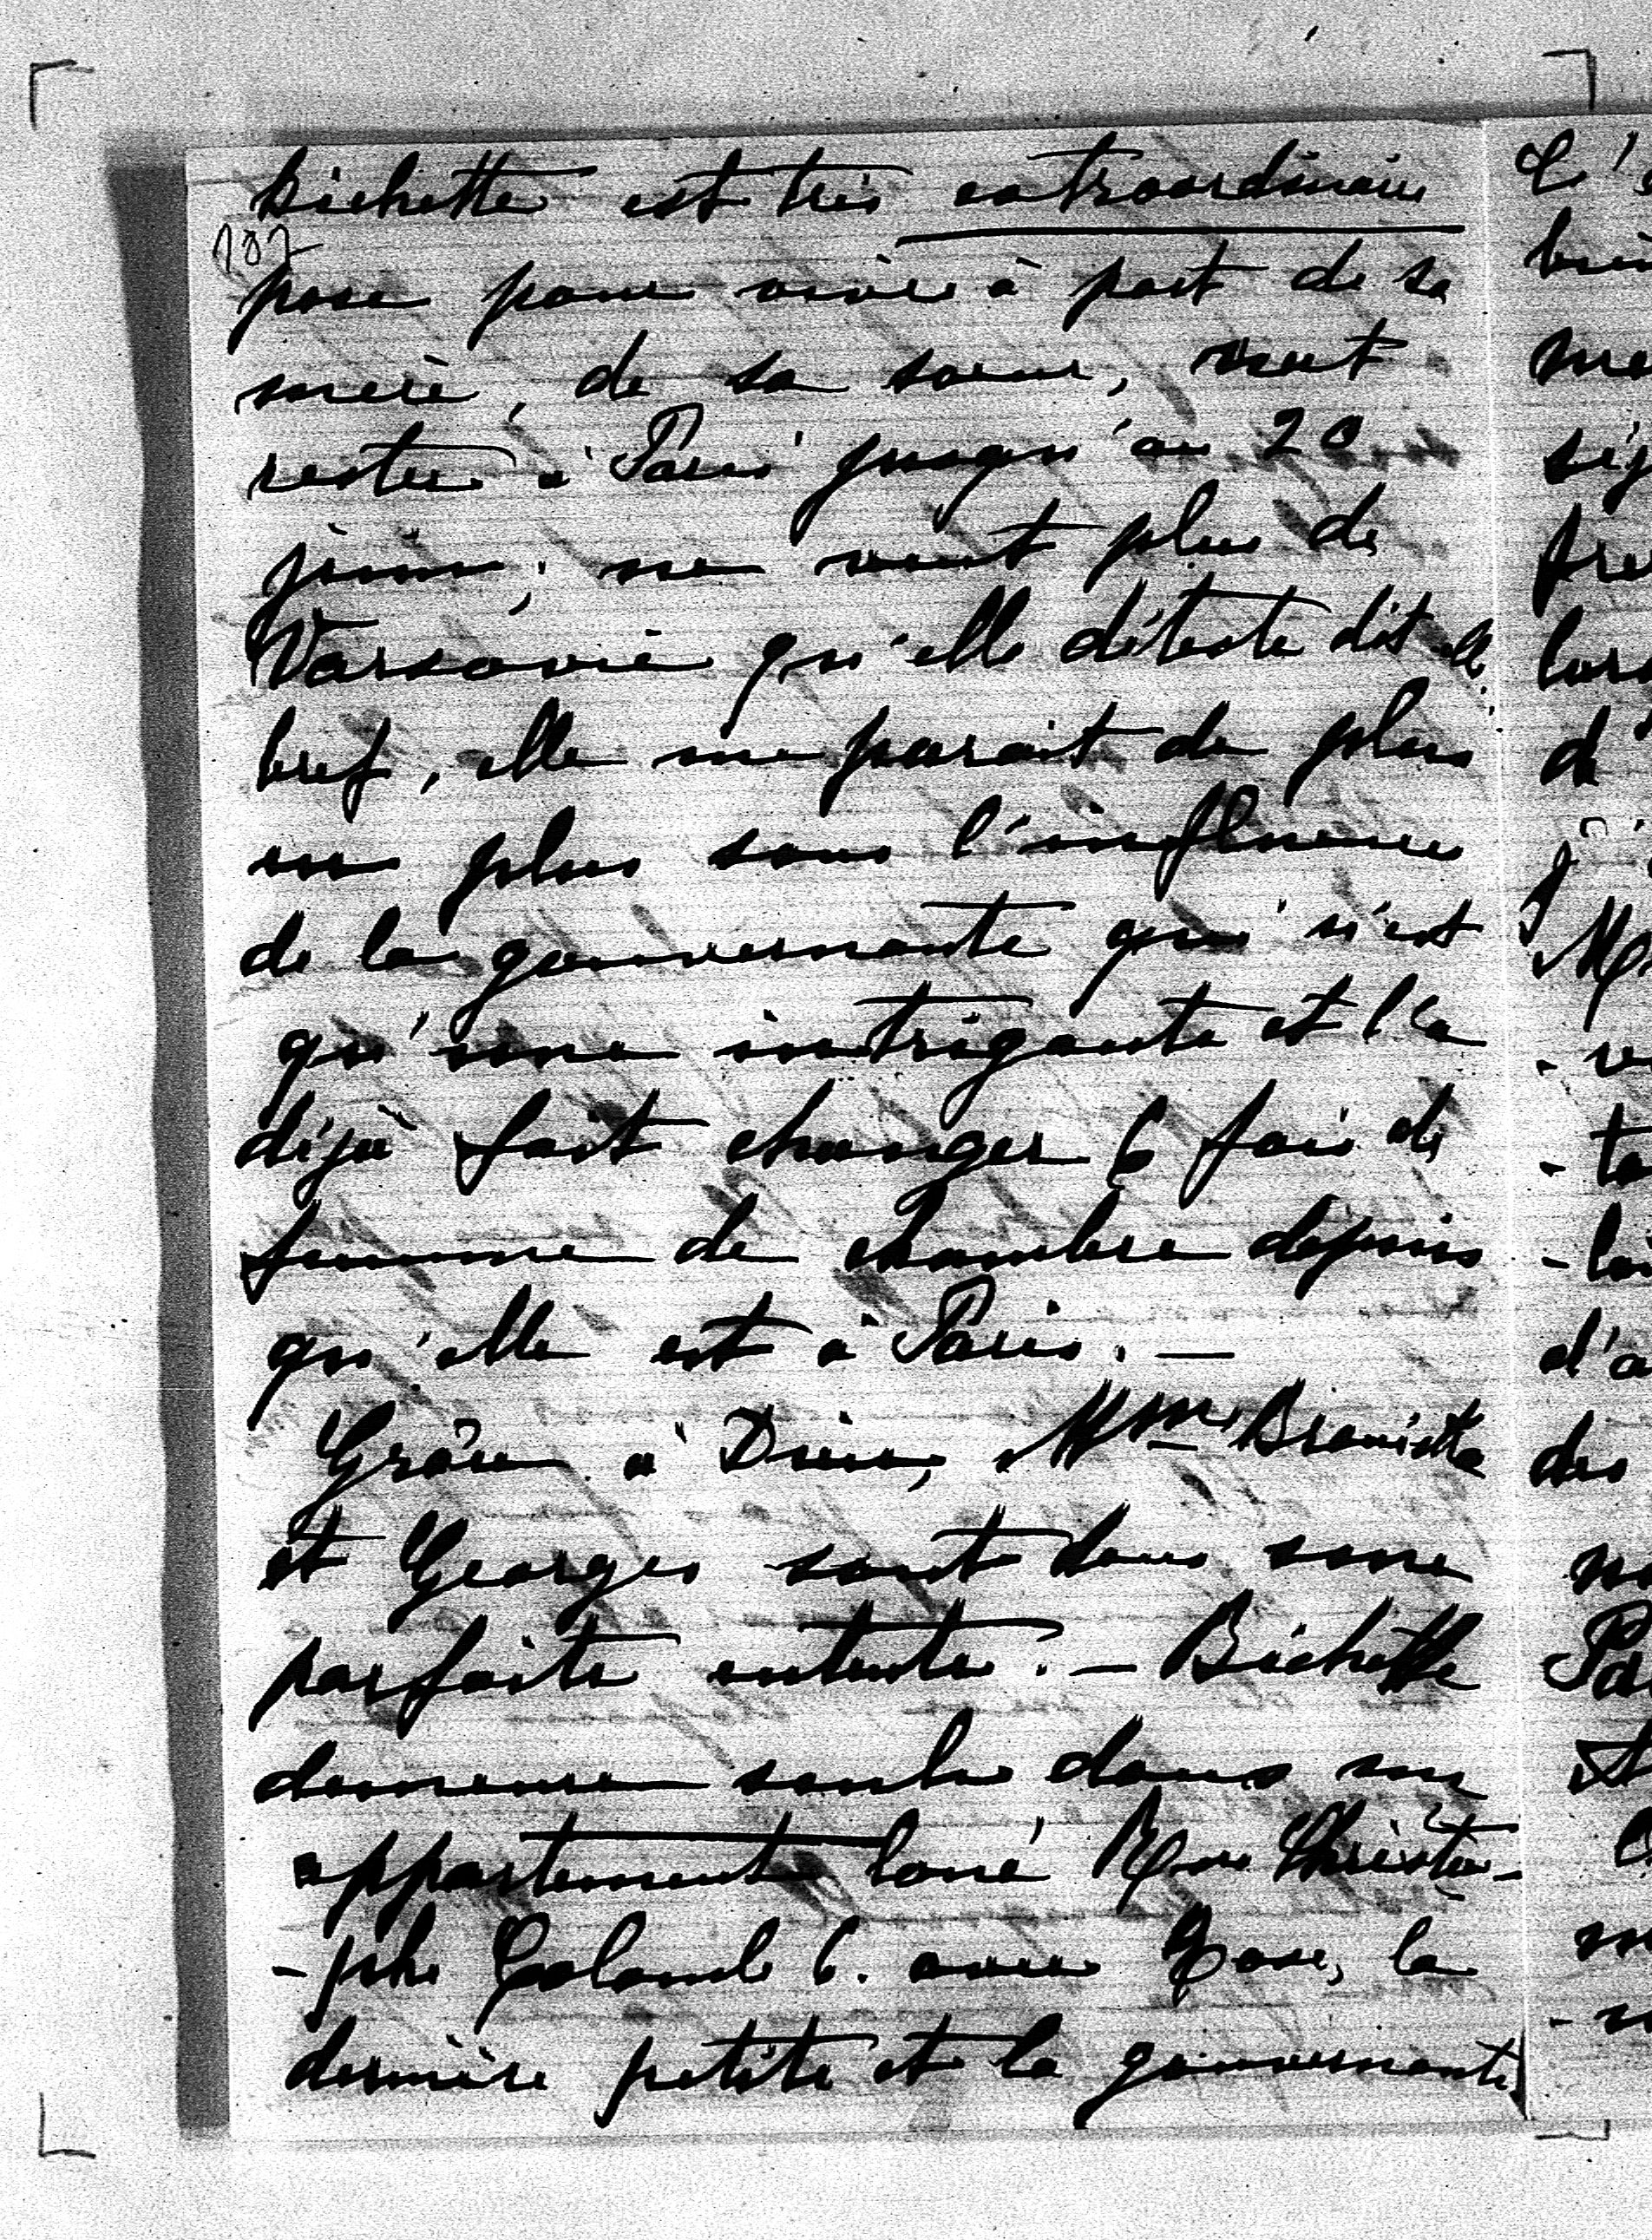 bichette est très extraordinaire
107
pose pour vivre à part de sa
mère, de sa soeur, veut
rester à Paris jusqu'au 20
juin; ne veut plus de
Varsovie qu'elle déteste dit elle
bref, elle me parait de plus
en plus sous l'influence
de la gouvernante qui n'est
qu'une intrigante et l'a
déjà fait changer 6 fois de
femme de chambre depuis
qu'elle est à Paris. —
Grâce à Dieu, Mme
et Georges sont dans une
parfaite entente. — Bichette
demeure seule dans un
appartement loué Rue Christo-
-phe Colomb 6. avec Rose, la
dernière petite et la gouvernante